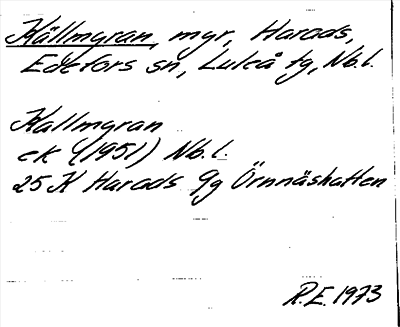 Källmyran, myr, Harads,
Edefors sn, Luleå tg, Nb.l.
Kallmyran
ek (1951) Nb.l.
25K Harads 9g Örnnäshatten
R.E. 1973